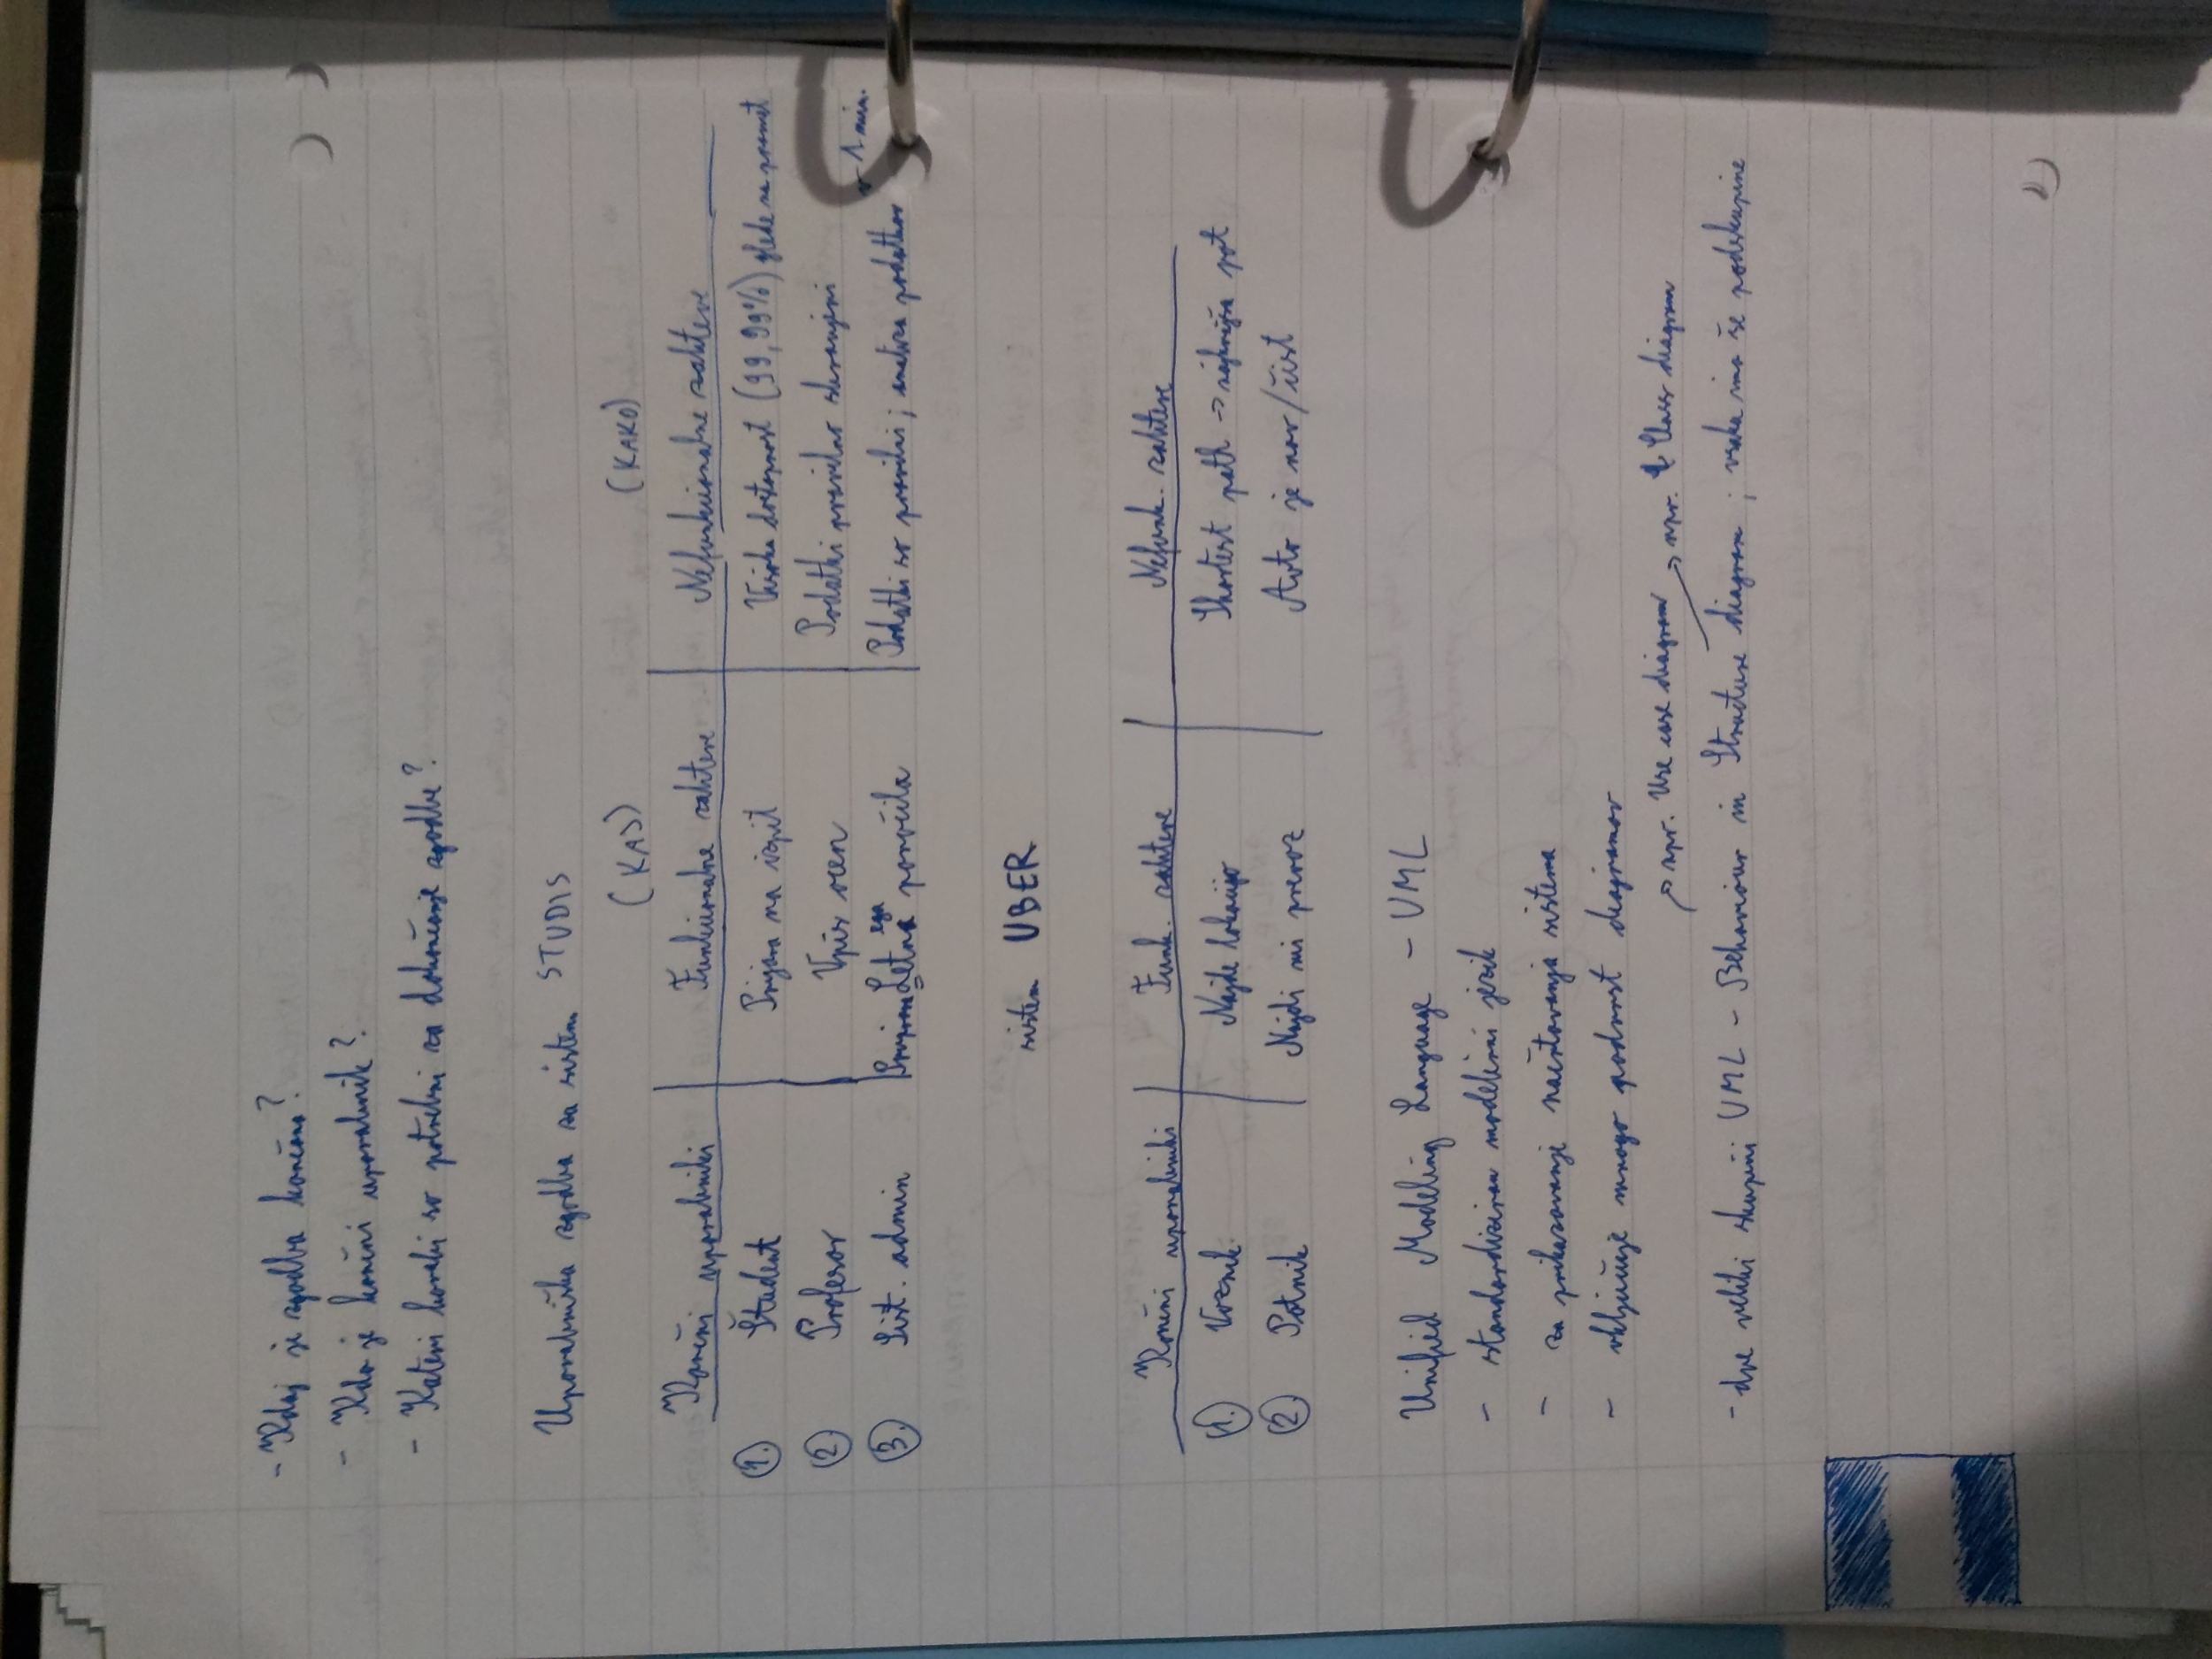 - Kdaj je zgodba končana?
- Kdo je končni uporabnik?
- Kateri koraki so potrebni za dokončanje zgodbe?
Uporabniška zgodba za sistem STUDIS
(KAJ) (KAKO)
Končni uporabniki Funkcionalne zahteve Nefunkcionalne zahteve
1. Študent Prijava na izpit Visoka dostopnost (99,99%) glede na promet
2. Profesor Vpis ocen Podatki pravilno shranjeni
3. Sist. admin Priprava Letnega poročila Podatki so pravilni; analiza podatkov v 1 min.
sistem UBER
Končni uporabniki Funk. zahteve Nefunk. zahteve
1. Voznik Najde lokacijo Shortest path -> najkrajša pot
2. Potnik Najdi mi prevoz Avto je nov/čist
Unified Modeling Language - UML
- standardiziran modelirni jezik
- za prikazovanje načrtovanja sistema
- vključuje mnogo podvrst diagramov
-> npr. Use case diagram -> npr. Class diagram
- dve veliki skupini UML - Behaviour in Structure diagram; vsaka ima še podskupine